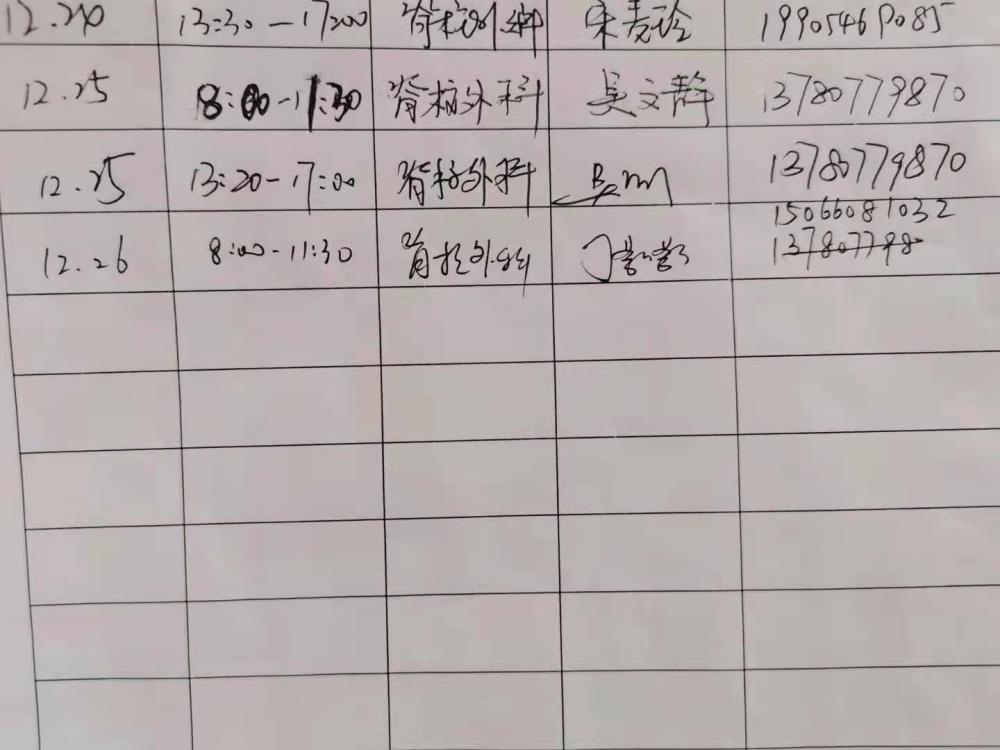 12.20 13:30-17:00 脊柱外科
12.25 8:00-11:30 脊柱外科 吴文静 13780779870
12.25 13:20-17:00 脊柱外科 13780779870
15066081032
12.26 8:00-11:30 脊柱外科 丁 137807798